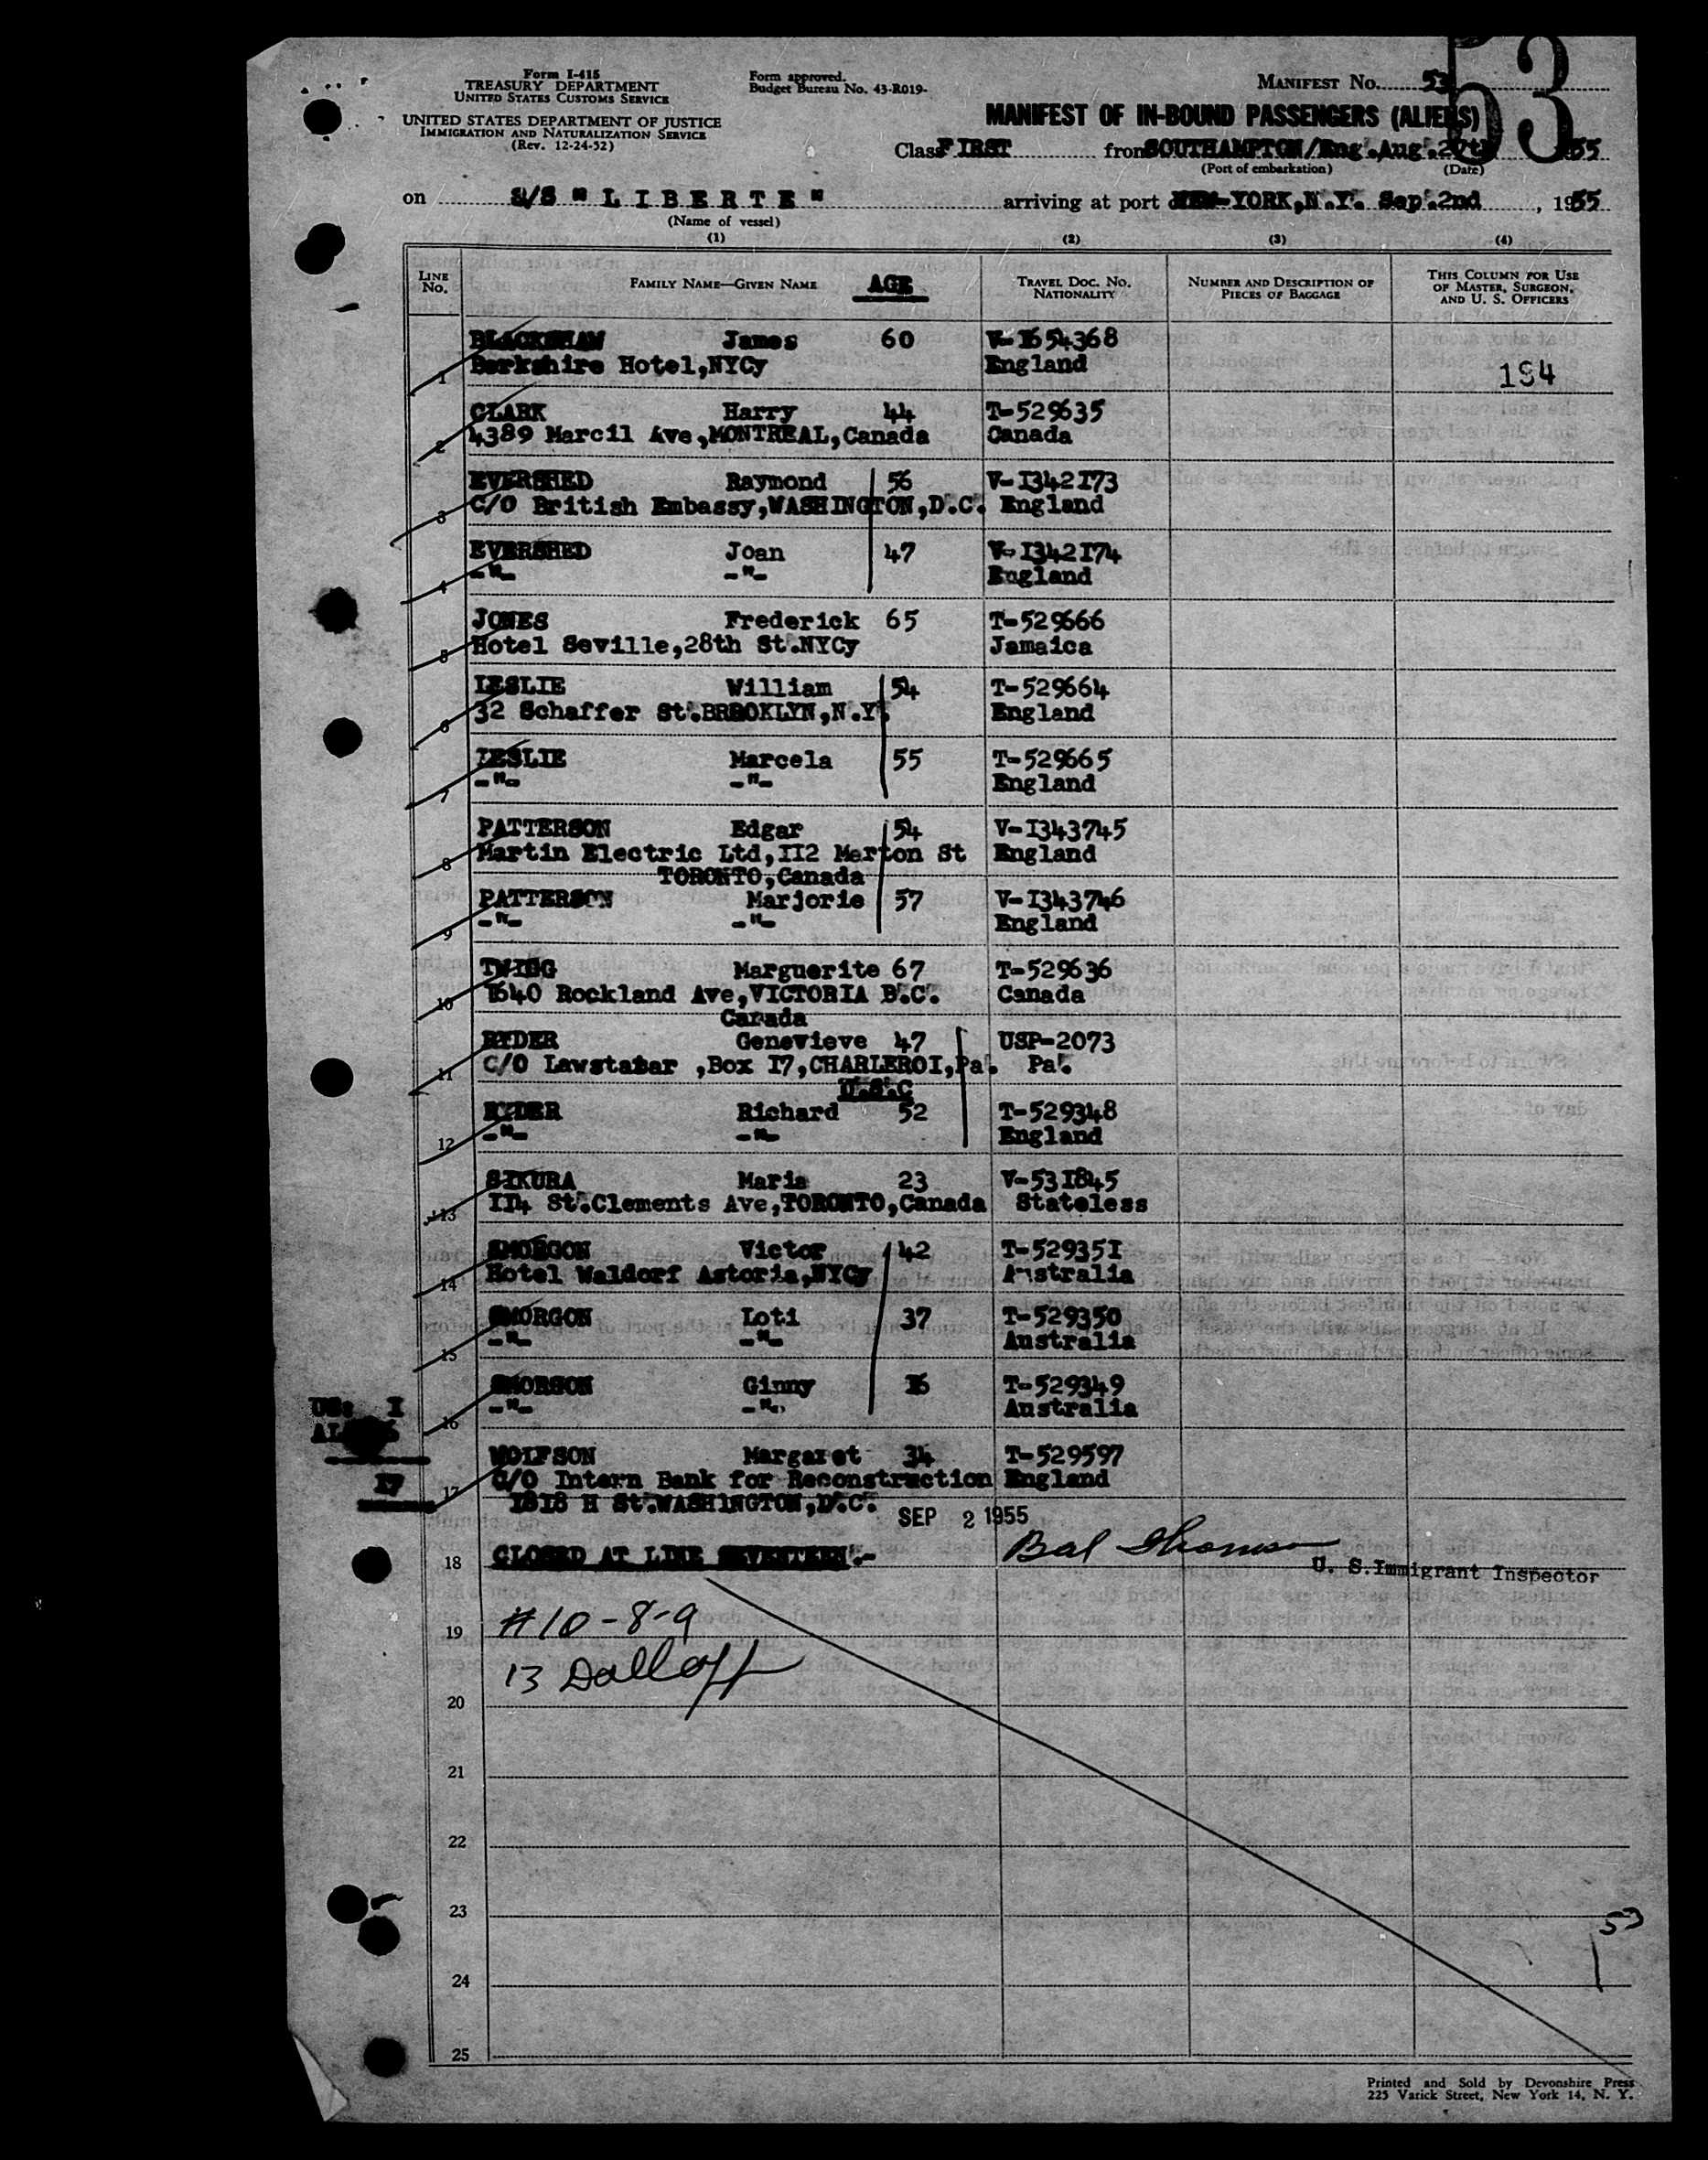 53
Form I-415
TREASURY DEPARTMENT
UNITED STATES CUSTOMS SERVICE
UNITED STATES DEPARTMENT OF JUSTICE
IMMIGRATION AND NATURALIZATION SERVICE
(Rev. 12-24-52)
Form approved.
Budget Bureau No. 43-R019-
MANIFEST No. 53
MANIFEST OF IN-BOUND PASSENGERS (ALIENS)
Class FIRST from SOUTHAMPTON/Eng.Aug. 1955
(Port of embarkation) (Date)
on S/S " L I B E R T E " arriving at port of NEW-YORK,N.Y. Sep.2nd, 1955
(Name of vessel)
(1) (2) (3) (4)
LINE No. FAMILY NAME—GIVEN NAME AGE TRAVEL DOC. NO. NATIONALITY NUMBER AND DESCRIPTION OF PIECES OF BAGGAGE THIS COLUMN FOR USE OF MASTER, SURGEON, AND U. S. OFFICERS
BLACKSHAW James 60 V-1654368
1 Berkshire Hotel,NYCy England 194
CLARK Harry 44 T-529635
2 4389 Marcil Ave,MONTREAL,Canada Canada
EVERSHED Raymond 56 V-I342I73
3 C/O British Embassy,WASHINGTON,D.C. England
EVERSHED Joan 47 V-I342I74
4 -"- -"- England
JONES Frederick 65 T-529666
5 Hotel Seville,28th St.NYCy Jamaica
LESLIE William 54 T-529664
6 32 Schaffer St.BROOKLYN,N.Y. England
LESLIE Marcela 55 T-529665
7 -"- -"- England
PATTERSON Edgar 54 V-I343745
8 Martin Electric Ltd,II2 Merton St England
TORONTO,Canada
PATTERSON Marjorie 57 V-I343746
9 -"- -"- England
TWIGG Marguerite 67 T-529636
10 1640 Rockland Ave,VICTORIA B.C. Canada
Canada
RYDER Genevieve 47 USP-2073
11 C/O Lawstabar ,Box I7,CHARLEROI,Pa. Pa.
U.S.C
RYDER Richard 52 T-529348
12 -"- -"- England
SIKURA Maria 23 V-53I845
13 II4 St.Clements Ave,TORONTO,Canada Stateless
SMORGON Victor 42 T-52935I
14 Hotel Waldorf Astoria,NYCy Australia
SMORGON Loti 37 T-529350
15 -"- -"- Australia
SMORGON Ginny 16 T-529349
16 -"- -"- Australia
US: I
I7
WOLFSON Margaret 34 T-529597
17 C/O Intern Bank for Reconstruction England
I8I8 H St.WASHINGTON,D.C.
SEP 2 1955
18 CLOSED AT LINE SEVENTEEN.-
U. S. Immigrant Inspector
19 #10-8-9
13 Dalloff
20
21
22
23
53
24
25
Printed and Sold by Devonshire Press
225 Varick Street, New York 14, N. Y.